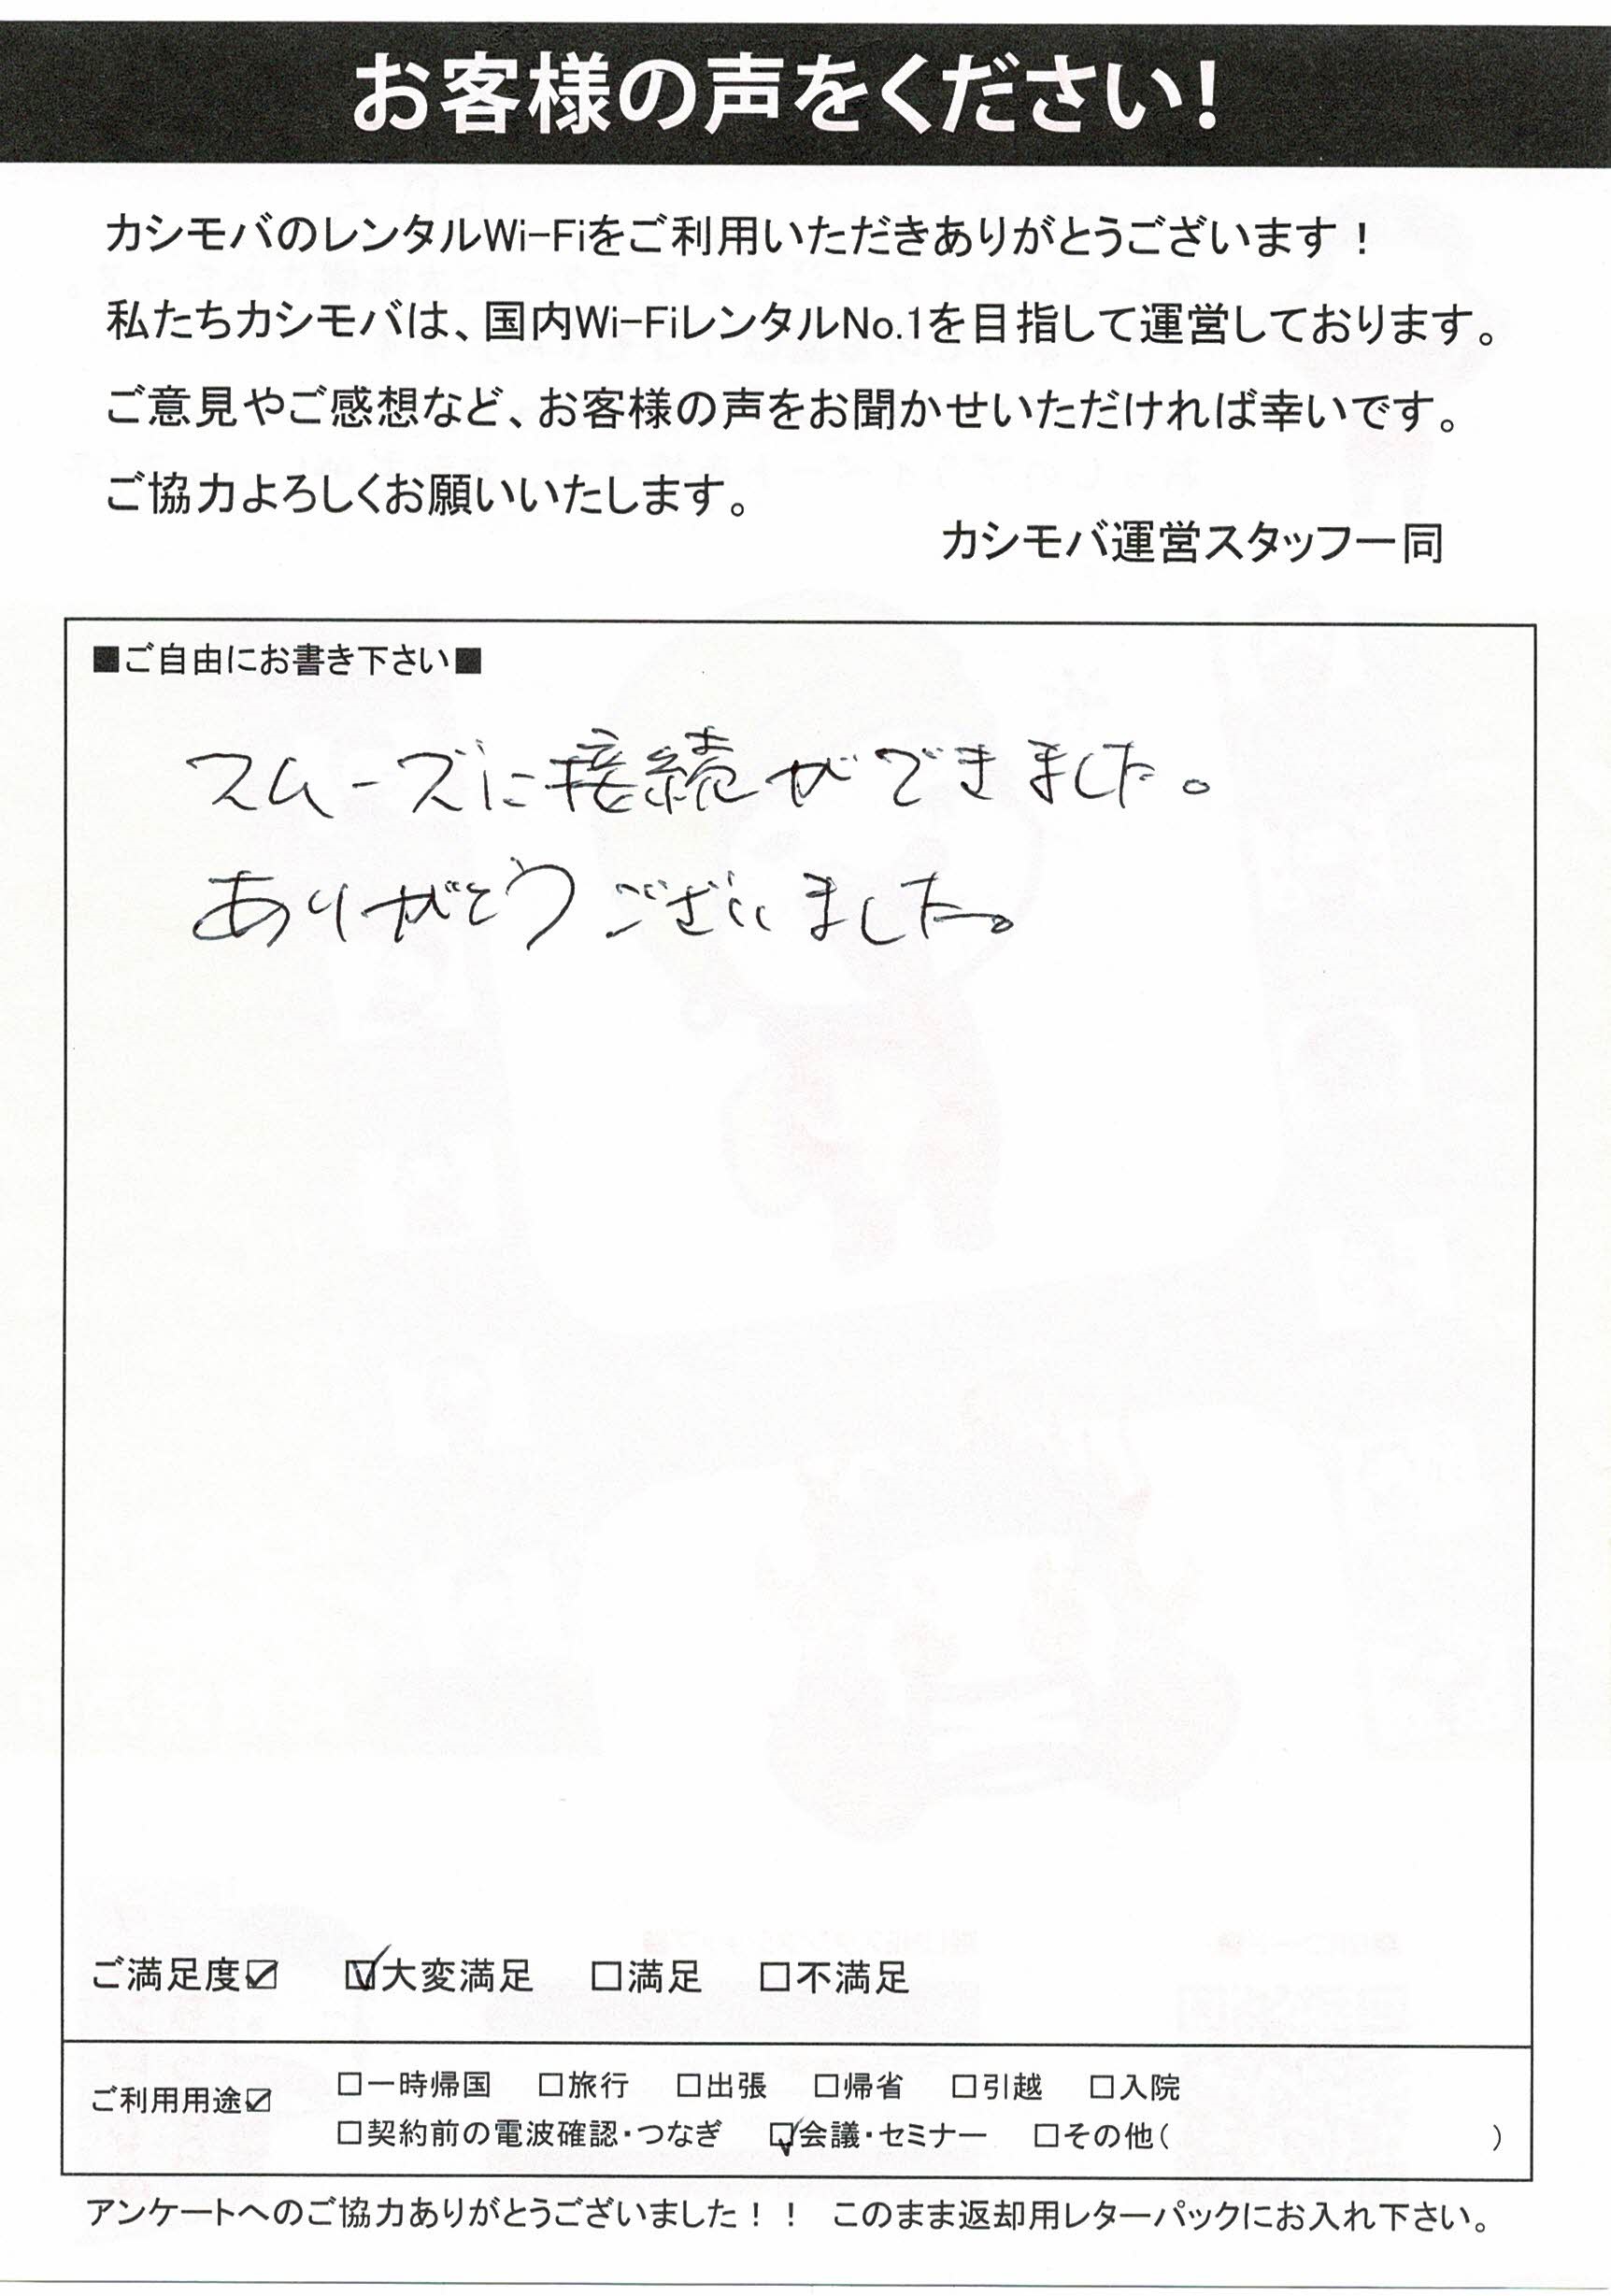 お客様の声をください！
カシモバのレンタルWi-Fiをご利用いただきありがとうございます！
私たちカシモバは、国内Wi-FiレンタルNo.1を目指して運営しております。
ご意見やご感想など、お客様の声をお聞かせいただければ幸いです。
ご協力よろしくお願いいたします。
カシモバ運営スタッフ一同
■ご自由にお書き下さい■
スムーズに接続ができました。
ありがとうございました。
ご満足度☑ ☑大変満足 □満足 □不満足
ご利用用途☑ □一時帰国 □旅行 □出張 □帰省 □引越 □入院
□契約前の電波確認・つなぎ ☑会議・セミナー □その他( )
アンケートへのご協力ありがとうございました！！ このまま返却用レターパックにお入れ下さい。